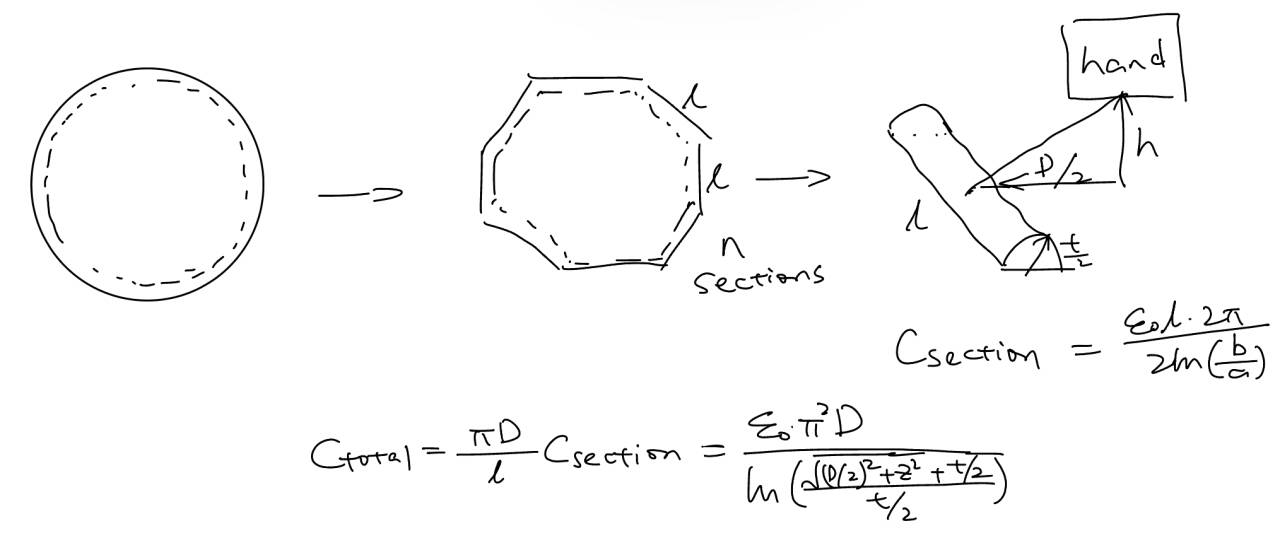 hand
l
l
D/2
h
l
t/2
n
sections
C_section = ε₀l·2π / 2ln(b/a)
C_total = πD/l C_section = ε₀·π²D / ln(√((D/2)²+z²) + t/2 / t/2)